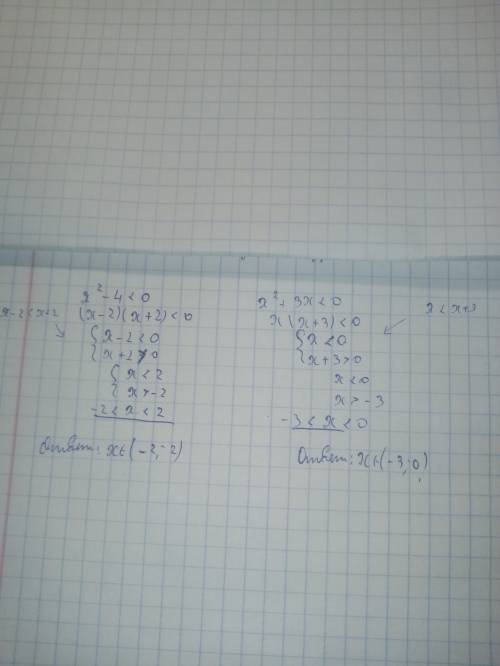 x² - 4 < 0
x-2 < x+2
(x-2)(x+2) < 0
{ x-2 < 0
{ x+2 > 0
{ x < 2
{ x > -2
-2 < x < 2
Ответ: x∈(-2;-2)
x² + 3x < 0
x < x+3
x(x+3) < 0
{ x < 0
{ x+3 > 0
x < 0
x > -3
-3 < x < 0
Ответ: x∈(-3;0)